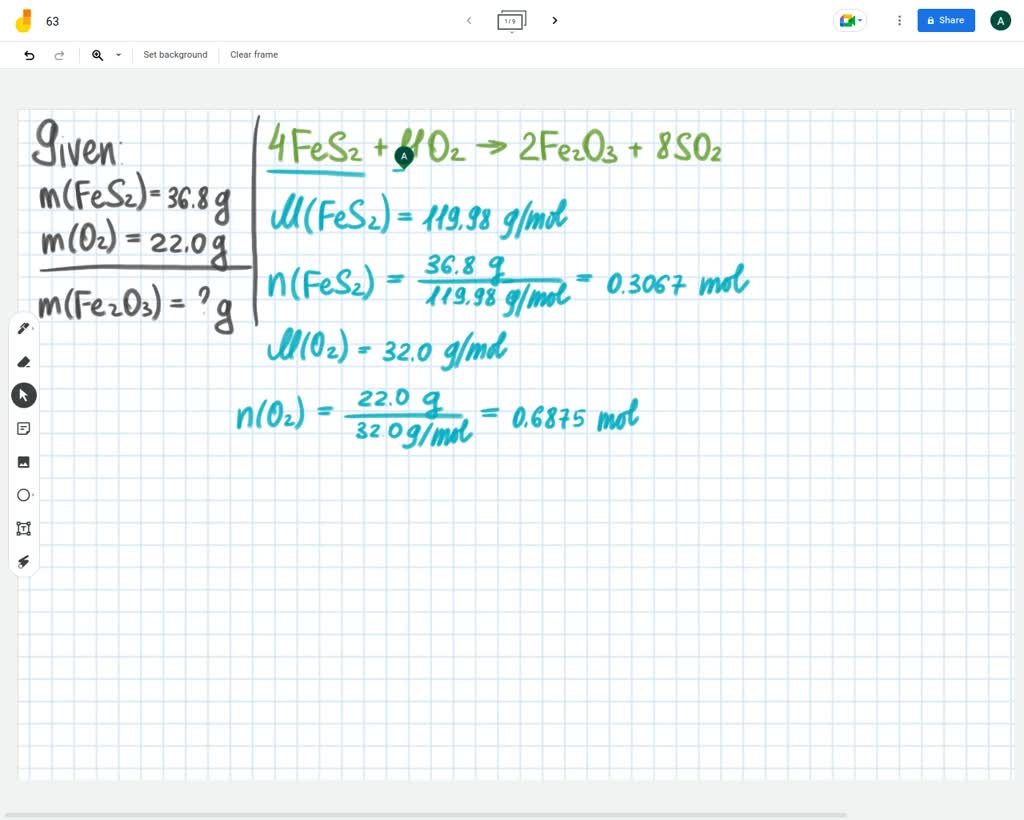 63
1/9
Share
A
Set background
Clear frame
Given:
m(FeS₂) = 36.8 g
m(O₂) = 22.0 g
m(Fe₂O₃) = ? g
4FeS₂ + 11O₂ → 2Fe₂O₃ + 8SO₂
A
M(FeS₂) = 119.98 g/mol
n(FeS₂) = 36.8 g / 119.98 g/mol = 0.3067 mol
M(O₂) = 32.0 g/mol
n(O₂) = 22.0 g / 32.0 g/mol = 0.6875 mol